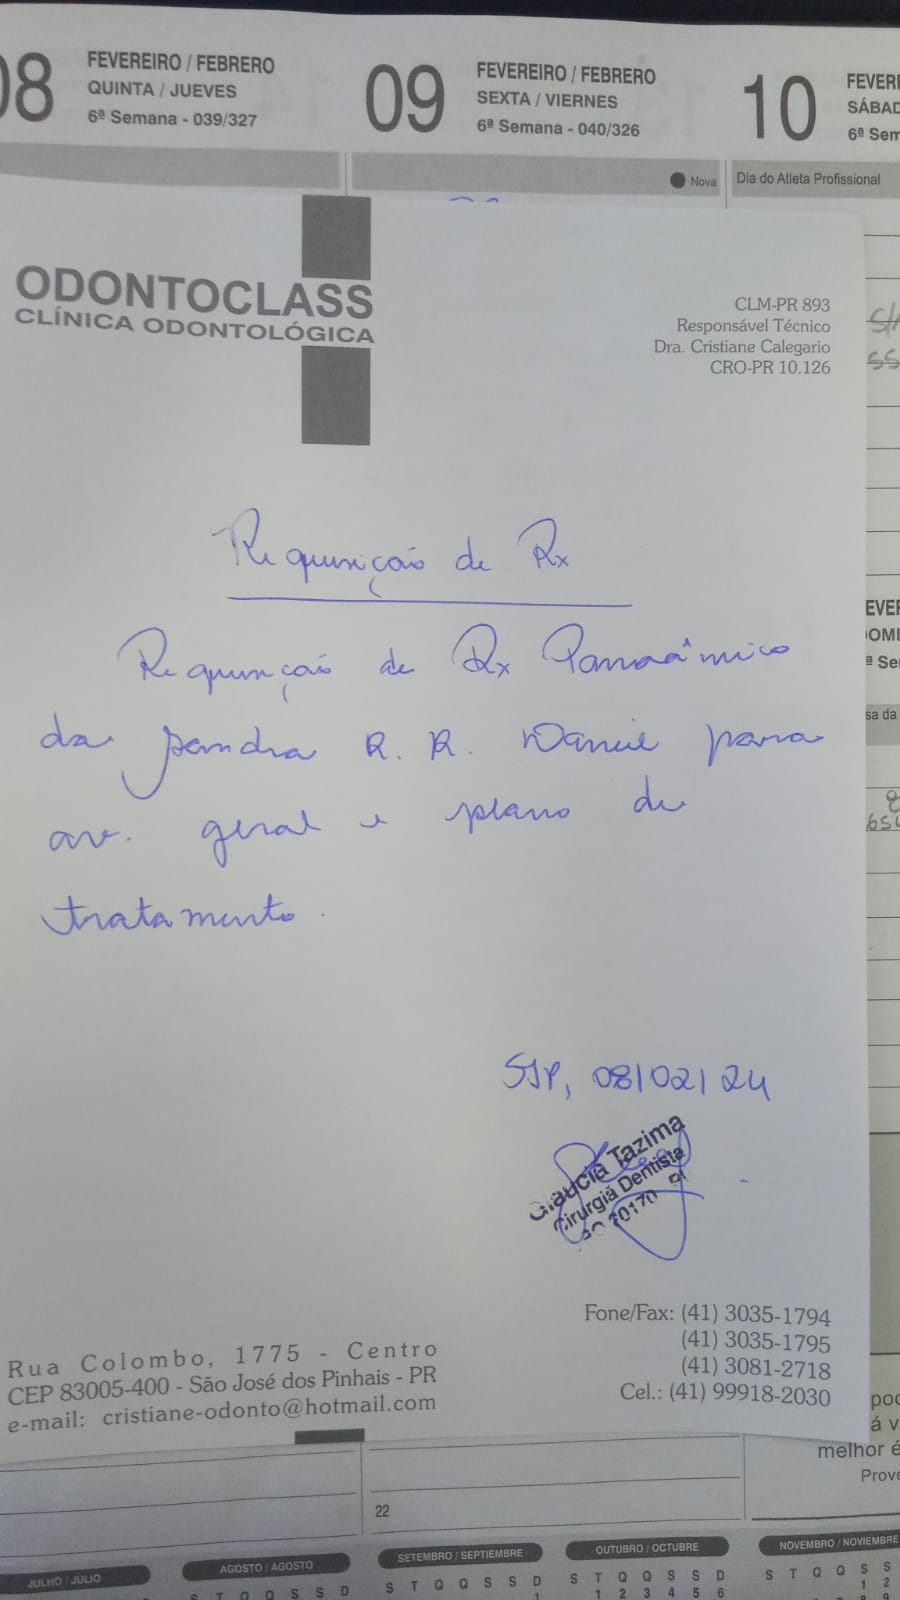 08
FEVEREIRO / FEBRERO
QUINTA / JUEVES
6ª Semana - 039/327
09
FEVEREIRO / FEBRERO
SEXTA / VIERNES
6ª Semana - 040/326
10
FEVERE
SÁBAD
6ª Sem
Nova
Dia do Atleta Profissional
ODONTOCLASS
CLÍNICA ODONTOLÓGICA
CLM-PR 893
Responsável Técnico
Dra. Cristiane Calegario
CRO-PR 10.126
Requisição de Rx
Requisição de Rx Panorâmico
da Sandra R. R. Daniel para
av. geral e plano de
tratamento.
SJP, 08/02/24
Glaucia Tazima
Cirurgiã Dentista
20170
Fone/Fax: (41) 3035-1794
(41) 3035-1795
(41) 3081-2718
Cel.: (41) 99918-2030
Rua Colombo, 1775 - Centro
CEP 83005-400 - São José dos Pinhais - PR
e-mail: cristiane-odonto@hotmail.com
EVER
DOMI
ª Se
sa da
poc
á v
melhor é
Prove
22
JULHO / JULIO
AGOSTO / AGOSTO
SETEMBRO / SEPTIEMBRE
OUTUBRO / OCTUBRE
NOVEMBRO / NOVIEMBRE
S T Q Q S S D
S T Q Q S S D
S T Q Q S S D
1 2 3 4 5 6
S T Q Q S S
1 2